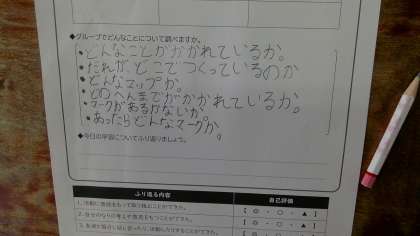 ◆グループでどんなことについて調べますか。
・どんなことがかかれているか。
・だれが、どこでつくっているのか
・どんなマップか。
・どのへんまでがかかれているか。
・マークがあるかないか。
・あったらどんなマークか。
◆今日の学習についてふり返りましょう。
ふり返る内容 自己評価
1. 活動に意欲をもって取り組むことができた。 【 ◎ ・ ○ ・ ▲ 】
2. 自分のなりの考えや意見をもつことができた。 【 ◎ ・ ○ ・ ▲ 】
【 ◎ ・ ○ ・ ▲ 】